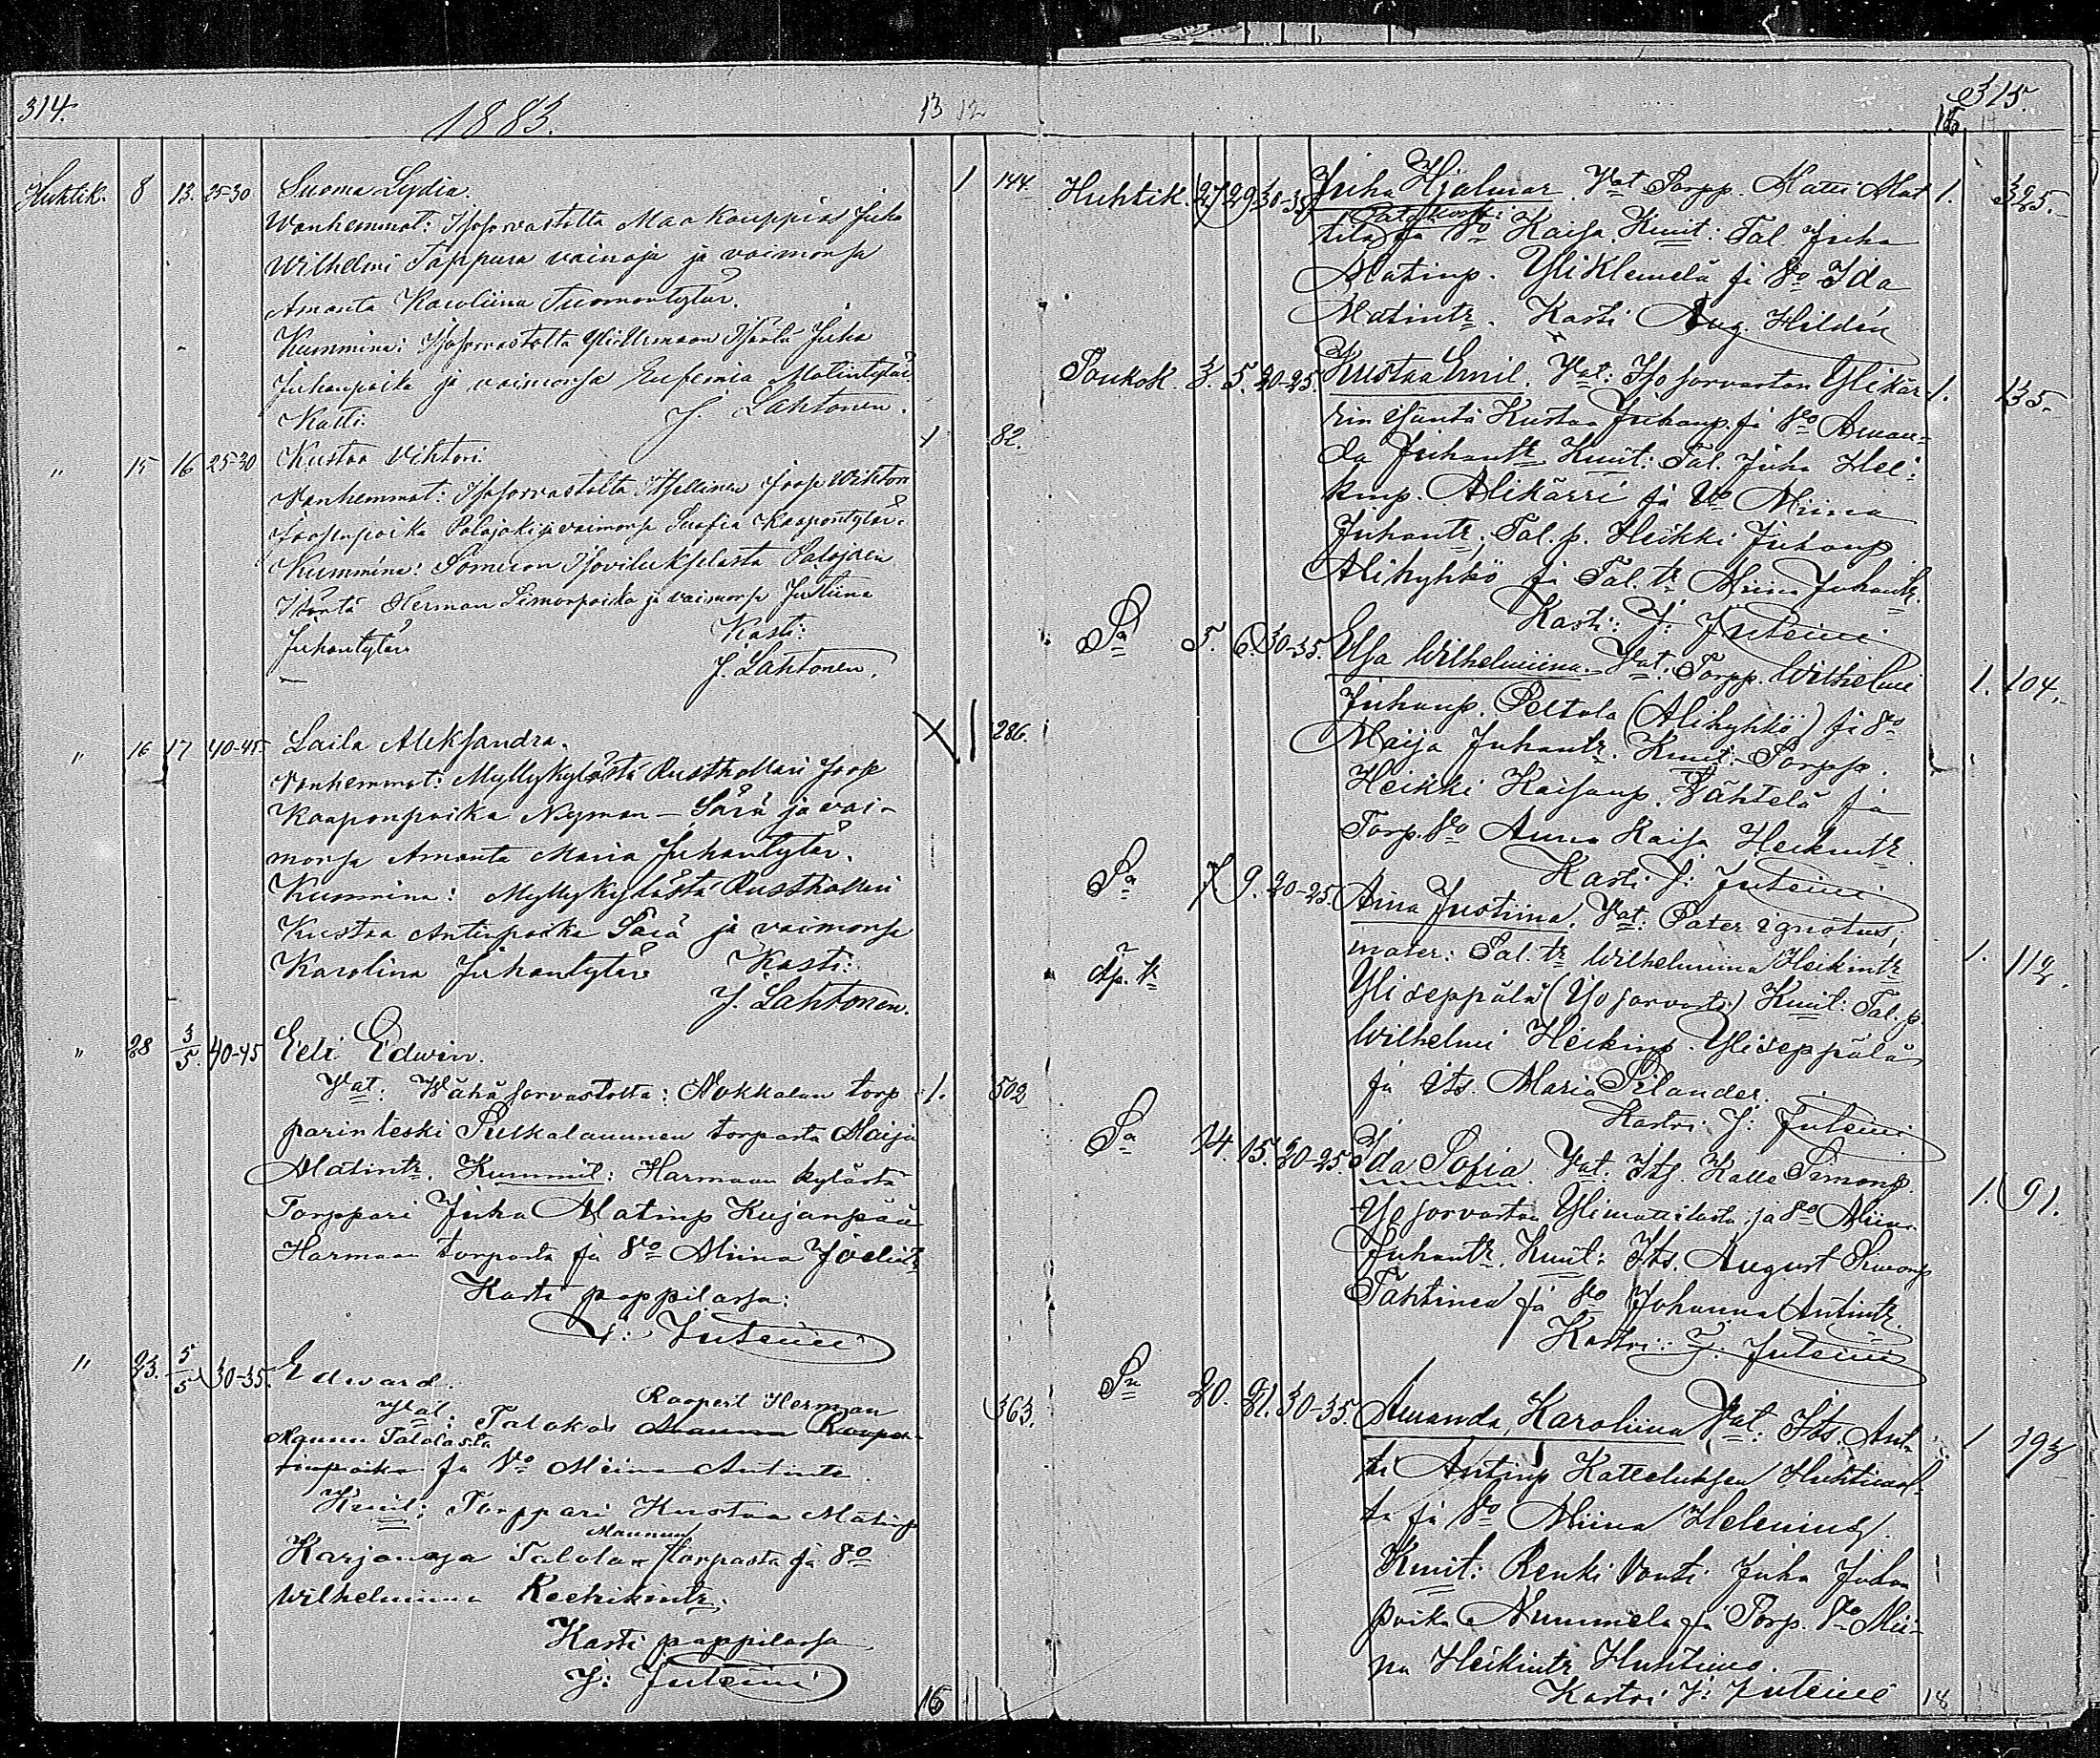 314.
1883.
13 12
Huhtik. 8 13. 25-30 Suoma Lydia. 1 144
Wanhemmat: Isosorvastolta Maakauppias Juha
Wilhelmi Tappura vainaja ja vaimonsa
Amanta Karoliina Tuomontytär.
Kummina: Isosorvastolta Isäntä Juha
Juhanpoika ja vaimonsa Eufemia Matintytär.
Kasti: J. Lahtonen.
" 15 16 25-30 Kustaa Vihtori. 1 82.
Vanhemmat: Isosorvastolta Itsellinen Joop Wihtori
Joopinpoika Palojoki ja vaimonsa Soofia Kaapontytär.
Kummina: Someron Palojoen
Isäntä Herman Simonpoika ja vaimonsa Justiina
Juhontytär Kasti:
J. Lahtonen.
" 16 17 40-45 Laila Aleksandra. X 1 286.
Vanhemmat: Myllykylästä Rusthollari Joop
Kaaponpoika Nyman-Särä ja vai-
monsa Amanta Maria Juhontytär.
Kummina: Myllykylästä Rusthollari
Kustaa Antinpoika Särä ja vaimonsa
Karolina Juhontytär Kasti:
J. Lahtonen.
" 28 3/5. 40-45 Eeli Edwin.
Vat: Wähäsorvastolta: Nokkalan torp 1. 502
parin leski torpasta Maija
Matintr. Kummit: Harmaan kylästä
Torppari Juha Matinp Kujanpää
Harmaan torpasta ja Vo Miina Joelintr
Kasti pappilassa:
J: Juteini
" 23. 5/5 30-35. Edward.
Roopert Herman
Vat: Talokas 363.
Nannu Talolasta
ja Vo Miina Antintr.
Kmit: Torppari Kustaa Matinp
Maunun
Karjanoja Talolan torpasta ja Vo
Wilhelmiina
Kasti pappilassa
J: Juteini
16
315.
15 14
Huhtik. 27 29. 30-35 Juha Hjalmar. Vat Torpp. Matti Mat 1. 325.
tila ja Vo Kaisa. Kmit: Tal. Juha
Matinp. Yliklemelä ja Vo Ida
Matintr. Kasti Aug. Hildén
Toukok. 3. 5. 20-25. Kustaa Emil. Vat: Iso sorvaston Ylikär- 1. 135.
rin isäntä Kustaa Juhanp. ja Vo Aman-
da Juhantr Kmit: Tal. Juha Hei-
kinp. Alikärri ja Vo Miina
Juhantr, Tal. p. Heikki Juhanp
Alihyhkö ja Tal. tr Miina Juhantr.
Kasti: J: Juteini
Sa 5. 6. 30-35. Elsa Wilhelmiina. Vat: Torpp. Wilhelmi 1. 104.
Juhanp. Peltola (Alihyhkö) ja Vo
Maija Juhantr. Kmit: Torpp.
Heikki Kaisanp. Vähtelä ja
Torp. Vo Anna Kaisa Heikintr
Kasti J: Juteini
Sa 7 9. 20-25. Aina Justiina. Vat: Pater ignotus,
äp. tr mater: Tal. tr Wilhelmiina Heikintr 1. 119.
Yliseppälä (Iso sorvasto) Kmit: Tal. p.
Wilhelmi Heikinp. Yliseppälä
ja its. Maria Silander.
Kastoi J: Juteini
Sa 14. 15. 20-25. Ida Sofia. Vat: Its. Kalle Simonp. 1. 91.
Iso sorvaston Ylimattilasta ja Vo Miina
Juhantr. Kmit: Its. August Simonp
Tähtinen ja Vo Johanna Antintr.
Kastoi: J: Juteini
Sa 20. 21. 30-35. Amanda Karoliina Vat: Its. Ant- 1 193
ti Antinp
ta ja Vo Miina Heleninp.
Kmit: Renki Vouti Juha Juhan
poika Nummela ja Torp. Vo Mii-
na Heikintr Huhtimo.
Kastoi J: Juteini 18